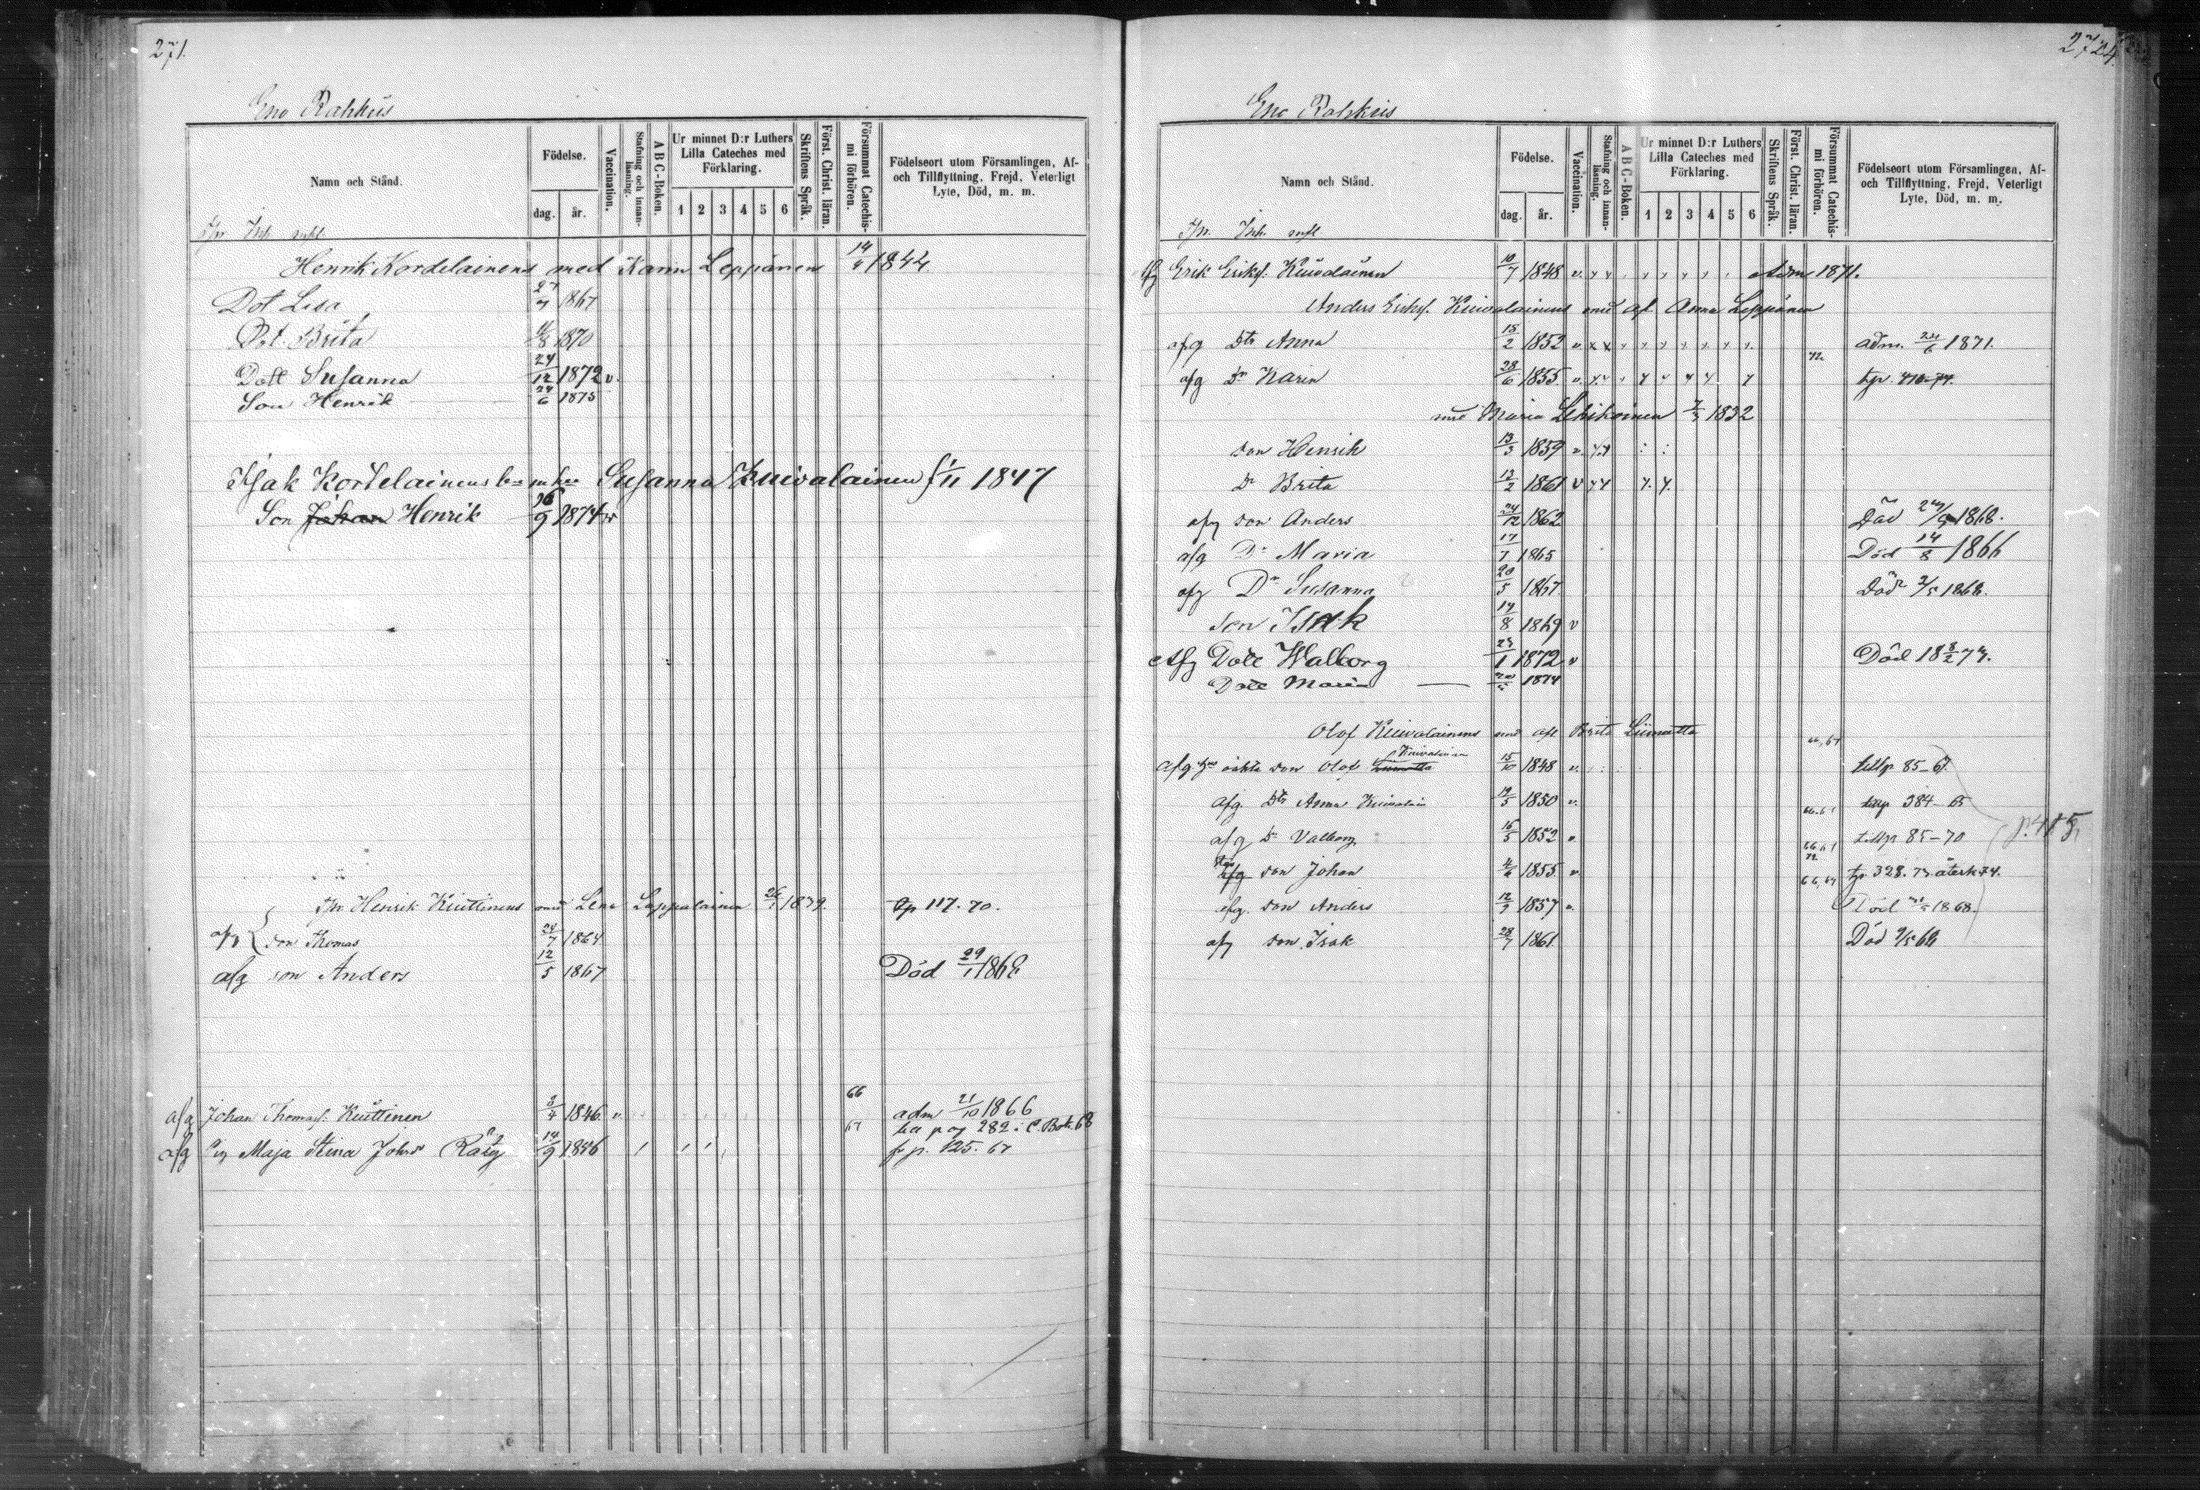 271.
Eno Rahkeis
Namn och Stånd.
Födelse.
dag. år.
Vaccination.
Stafning och innanläsning.
A B C-Boken.
Ur minnet D:r Luthers Lilla Cateches med Förklaring.
1 2 3 4 5 6
Skriftens Språk.
Först. Christ. läran.
Försummat Catechismi förhören.
Födelseort utom Församlingen, Af- och Tillflyttning, Frejd, Veterligt Lyte, Död, m. m.
Henrik Kordelainens med Karin Leppänen 14/4 1844
Dot Lisa 27/7 1867
Dot. Brita 11/8 1870
Dott Susanna 24/12 1872 v.
Son Henrik 24/6 1875
Isak Kordelainens Susanna Kuivalainen f 1/11 1847
Son Johan Henrik 26/9 1874 v
Henrik Kuittinens med Lena Lappalainen 26/1 1839. tp 117. 70.
afg son Thomas 24/7 1864
afg son Anders 12/5 1867 Död 29/1 1868
66
afg Johan Thomasf. Kuittinen 3/4 1846 v. adm 21/10 1866
67 pag 282 i C. Bok. 68
afg Maja Stina Johsdr Räty 14/9 1846 fr p. 125. 67
272
Eno Rahkeis
Namn och Stånd.
Födelse.
dag. år.
Vaccination.
Stafning och innanläsning.
A B C-Boken.
Ur minnet D:r Luthers Lilla Cateches med Förklaring.
1 2 3 4 5 6
Skriftens Språk.
Först. Christ. läran.
Försummat Catechismi förhören.
Födelseort utom Församlingen, Af- och Tillflyttning, Frejd, Veterligt Lyte, Död, m. m.
afg Erik Eriksf. Kuivalainen 10/7 1848 v. Adm 1871.
Anders Eriksf. Kuivalainens med afl Anna Leppänen
afg Dtr Anna 15/2 1852 v. adm. 24/6 1871.
72.
afg Dr Karin 28/6 1855 v.
med Maria Lehikoinen 7/3 1832
son Henrik 13/3 1859 v.
Dr Brita 12/2 1861 v
afg son Anders 24/12 1862 Död 24/4 1868.
afg Dr Maria 17/7 1865 Död 14/8 1866
afg Dr Susanna 20/5 1867. Död 2/5 1868.
son Isak 19/8 1869 v
Afg Dott Walborg 25/1 1872 v Död 18 8/2 74.
Dott Maria 1874
Olof Kuivalainens med afl Brita Liimatta
66, 67
afg son Olof Liimatta Kuivalainen 15/10 1848 v. tillp 85-67.
afg. Dtr Anna Kuivalain 19/5 1850 v. tillp 384-65
66. 67
afg Dr Valborg 16/5 1852 v. tillp 85-70 p. 415.
66 67
72
afg son Johan 4/4 1855 v. tp 328. 73 återk 74.
66, 67
afg. son Anders 12/9 1857 v. Död 1868.
afg son Isak 28/7 1861. Död 9/5 68